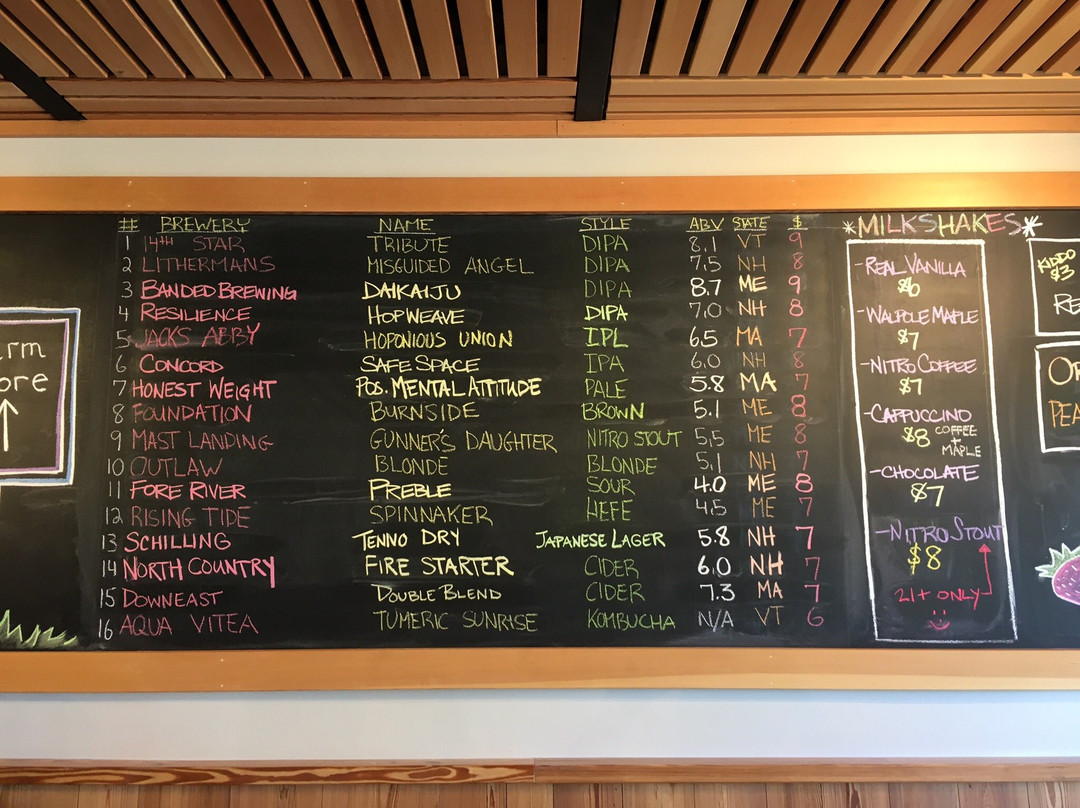 # BREWERY NAME STYLE ABV STATE $
1 14TH STAR TRIBUTE DIPA 8.1 VT 9
2 LITHERMANS MISGUIDED ANGEL DIPA 7.5 NH 8
3 BANDED BREWING DAIKAIJU DIPA 8.7 ME 9
4 RESILIENCE HOP WEAVE DIPA 7.0 NH 8
5 JACKS ABBY HOPONIOUS UNION IPL 6.5 MA 7
6 CONCORD SAFE SPACE IPA 6.0 NH 8
7 HONEST WEIGHT POS. MENTAL ATTITUDE PALE 5.8 MA 7
8 FOUNDATION BURNSIDE BROWN 5.1 ME 8
9 MAST LANDING GUNNER'S DAUGHTER NITRO STOUT 5.5 ME 8
10 OUTLAW BLONDE BLONDE 5.1 NH 7
11 FORE RIVER PREBLE SOUR 4.0 ME 8
12 RISING TIDE SPINNAKER HEFE 4.5 ME 7
13 SCHILLING TENNO DRY JAPANESE LAGER 5.8 NH 7
14 NORTH COUNTRY FIRE STARTER CIDER 6.0 NH 7
15 DOWNEAST DOUBLE BLEND CIDER 7.3 MA 7
16 AQUA VITEA TUMERIC SUNRISE KOMBUCHA N/A VT 6
*MILKSHAKES*
-REAL VANILLA
$6
-WALPOLE MAPLE
$7
-NITRO COFFEE
$7
-CAPPUCCINO
$8 COFFEE
+
MAPLE
-CHOCOLATE
$7
-NITRO STOUT
$8
21+ ONLY
KIDDO
$3